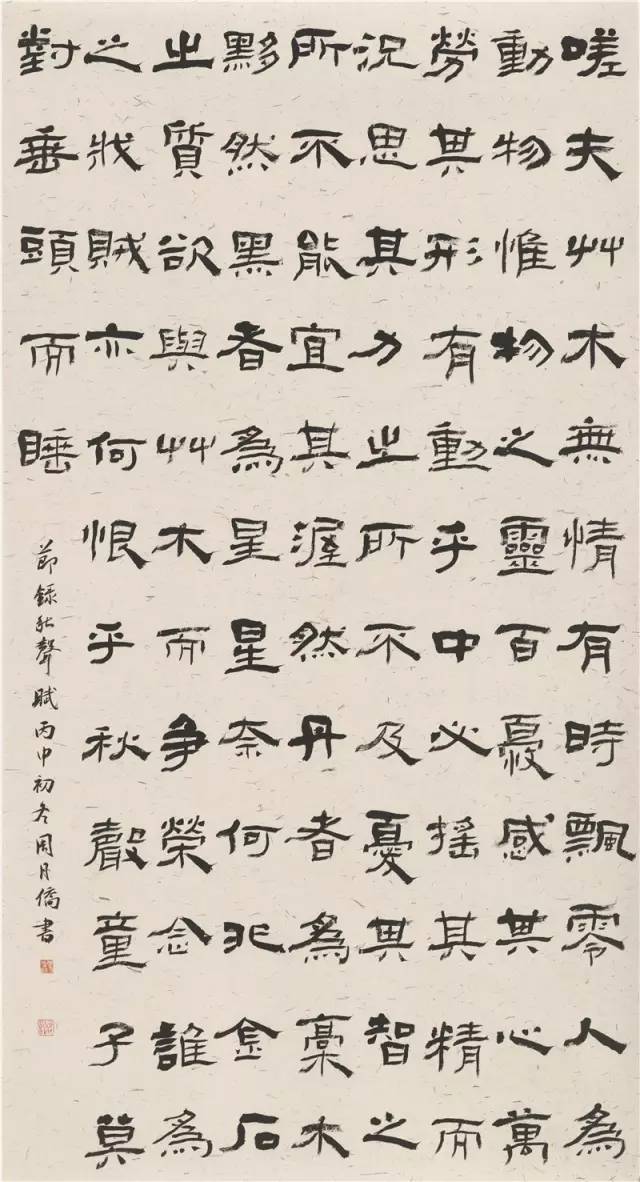 嗟夫艸木無情有時飄零人為
動物惟物之靈百憂感其心萬
勞其形有動乎中必搖其精而
況思其力之所不及憂其智之
所不能宜其渥然丹者為槀木
黟然黑者為星星奈何非金石
之質欲與艸木而爭榮念誰為
之戕賊亦何恨乎秋聲童子莫
對垂頭而睡
節錄秋聲賦丙申初冬周月僑書